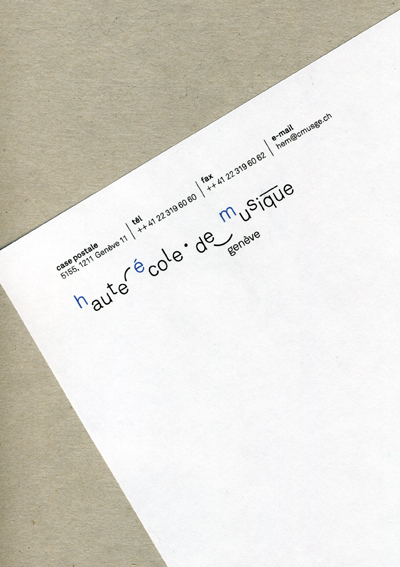 case postale
5155, 1211 Genève 11
tél
++ 41 22 319 60 60
fax
++ 41 22 319 60 62
e-mail
hem@cmusge.ch
haute école • de musique
genève